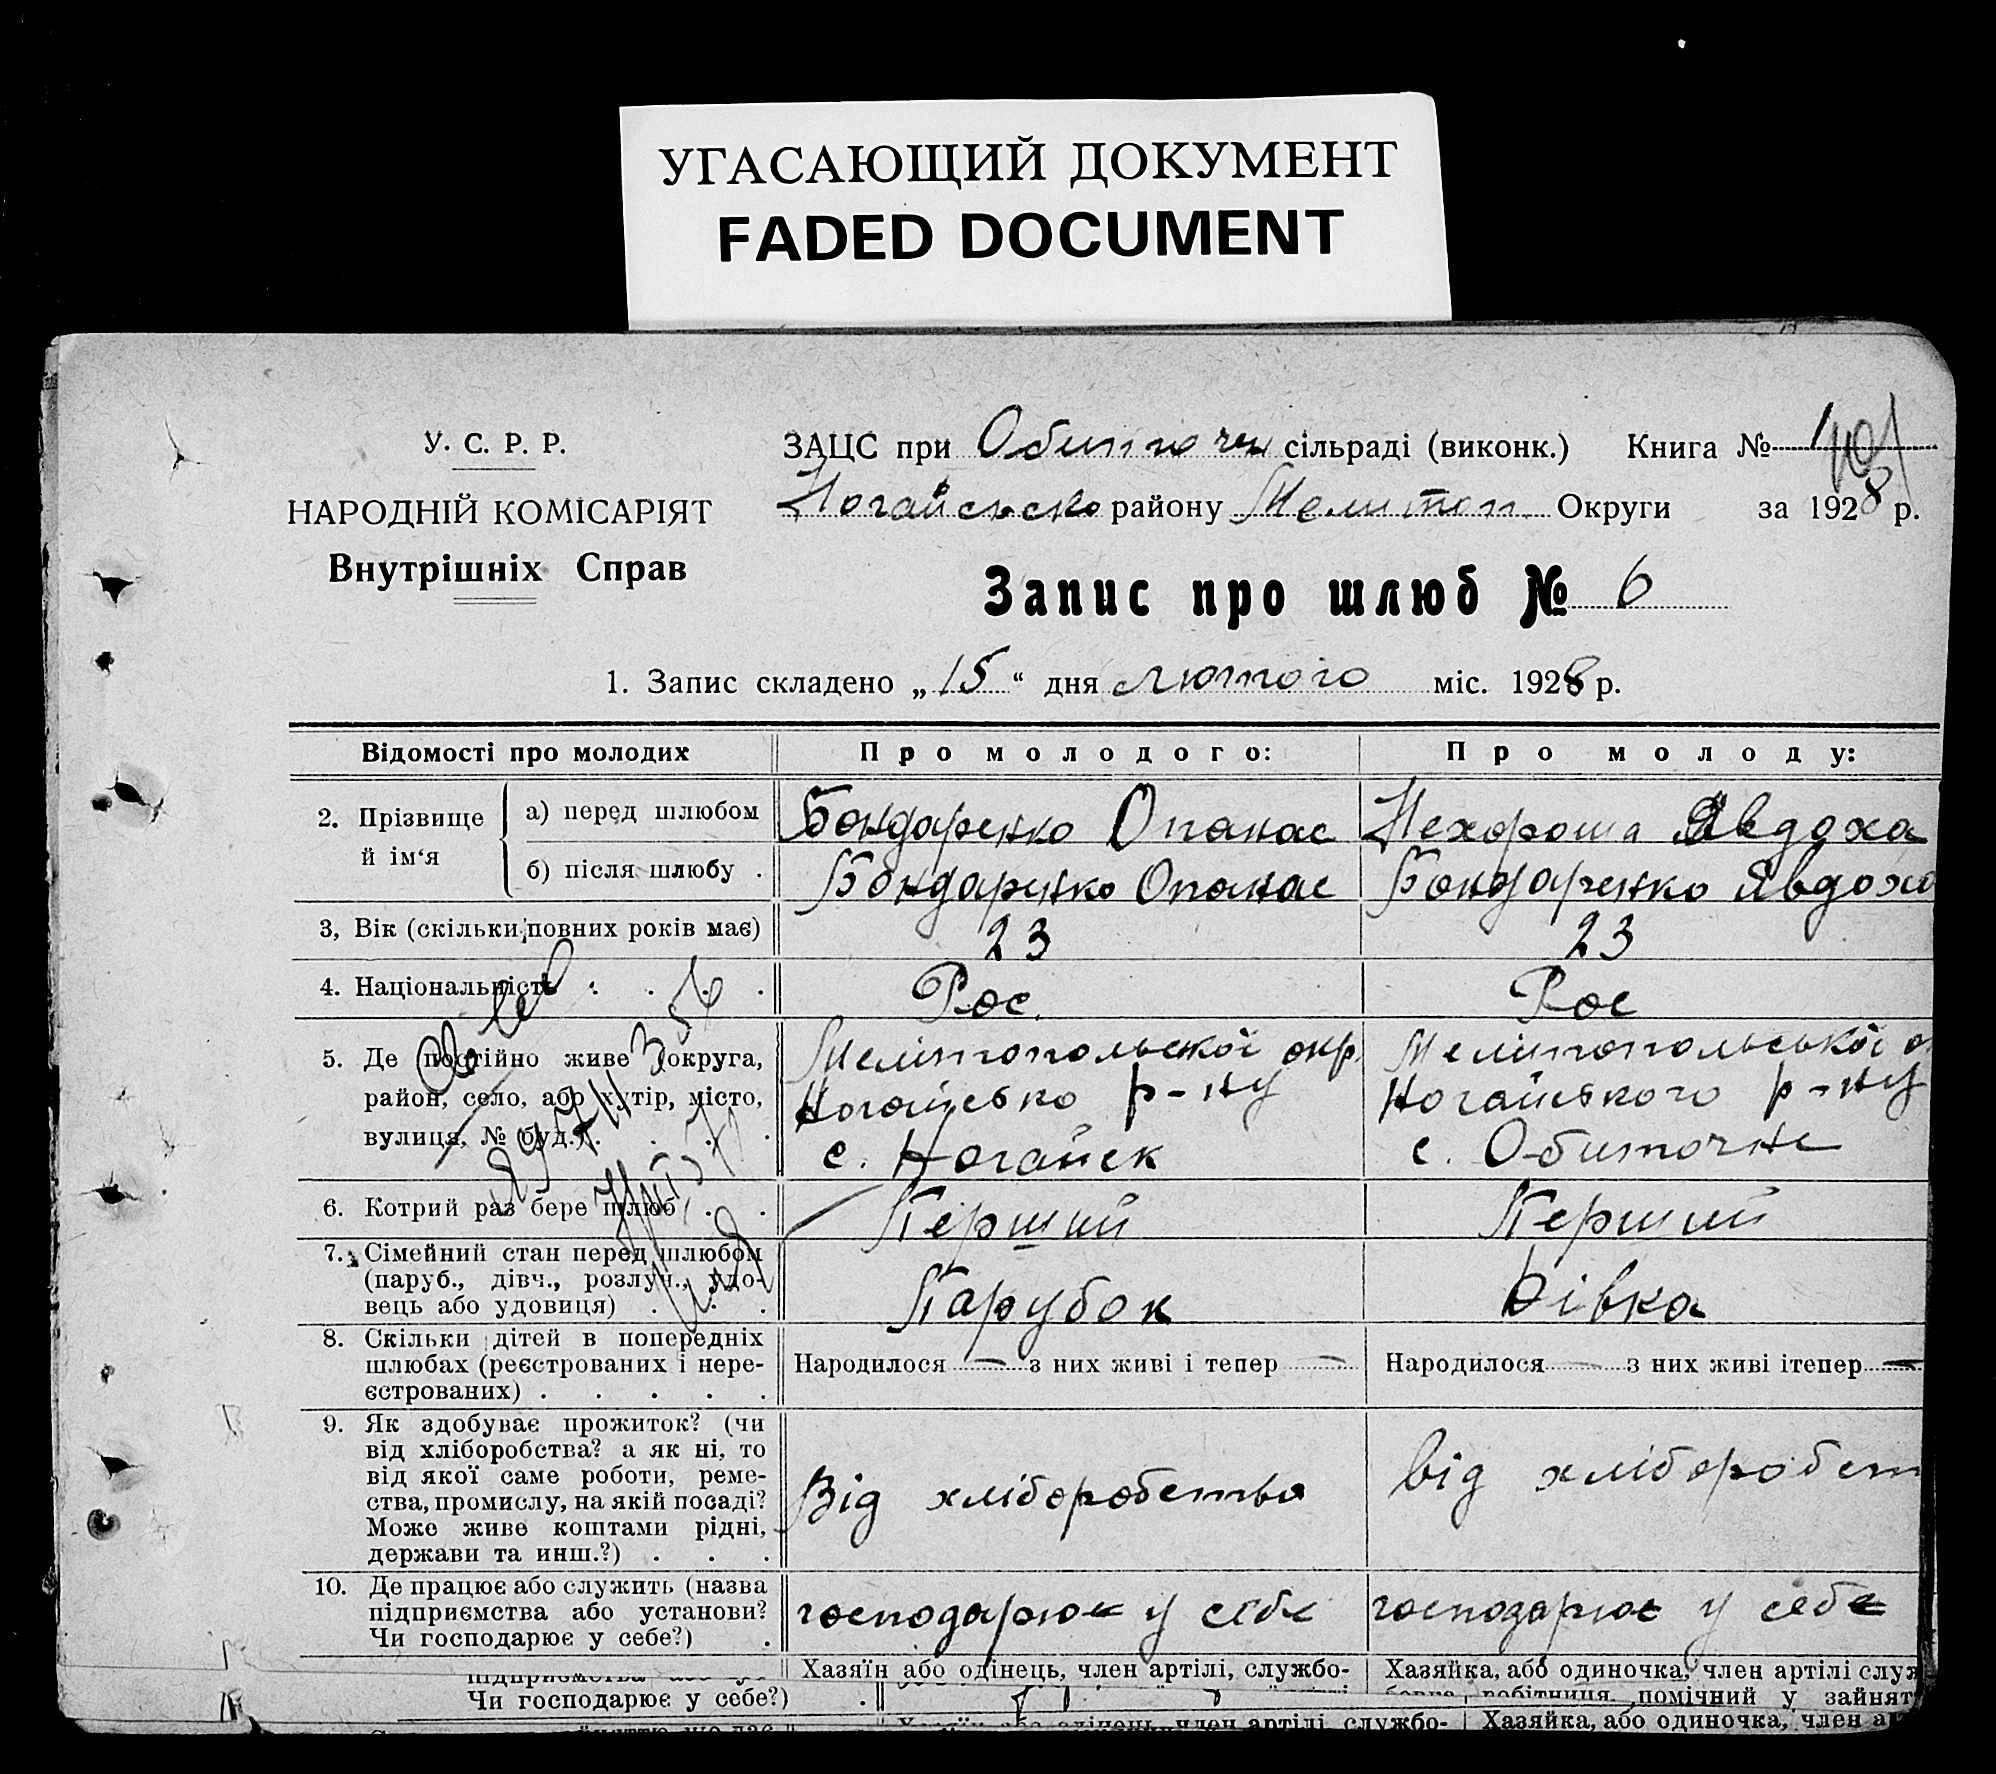 УГАСАЮЩИЙ ДОКУМЕНТ
FADED DOCUMENT
У. С. Р. Р.
НАРОДНІЙ КОМІСАРІЯТ
Внутрішніх Справ
ЗАЦС при Обиточн сільраді (виконк.) Книга № 1
Ногайсько району Мелитоп. Округи за 1928 р.
Запис про шлюб № 6
1. Запис складено „15“ дня лютого міс. 1928 р.
Відомості про молодих Про молодого: Про молоду:
2. Прізвище й ім‘я
а) перед шлюбом Бондаренко Опанас Нехороша Явдоха
б) після шлюбу . Бондаренко Опанас Бондаренко Явдоха
3, Вік (скільки повних років має) 23 23
4. Національність . . . . Рос. Рос
5. Де постійно живе (округа,
район, село, або хутір, місто,
вулиця, № буд.) . . . .
Мелітопольської окр.
Ногайсько р-ну
с. Ногайск
Мелітопольської о
Ногайського р-ну
с. Обиточне
6. Котрий раз бере шлюб . . Перший Перший
7. Сімейний стан перед шлюбом
(паруб., дівч., розлуч., удо-
вець або удовиця) . . .
Парубок Дівка
8. Скільки дітей в попередніх
шлюбах (реєстрованих і нере-
єстрованих) . . . . .
Народилося — з них живі і тепер —
Народилося — з них живі ітепер —
9. Як здобуває прожиток? (чи
від хліборобства? а як ні, то
від якої саме роботи, реме-
ства, промислу, на якій посаді?
Може живе коштами рідні,
держави та инш.?) . . .
Від хліборобства
Від хліборобст
10. Де працює або служить (назва
підприємства або установи?
Чи господарює у себе?) .
господарює у себе
господарює у себе
Хазяїн або одінець, член артілі, службо-
Хазяйка, або одиночка, член артілі служ
робітниця, помічний у зайнят
Чи господарює у себе?) .
Хазяїн або одінець, член артілі, службо-
Хазяйка, або одиночка, член а